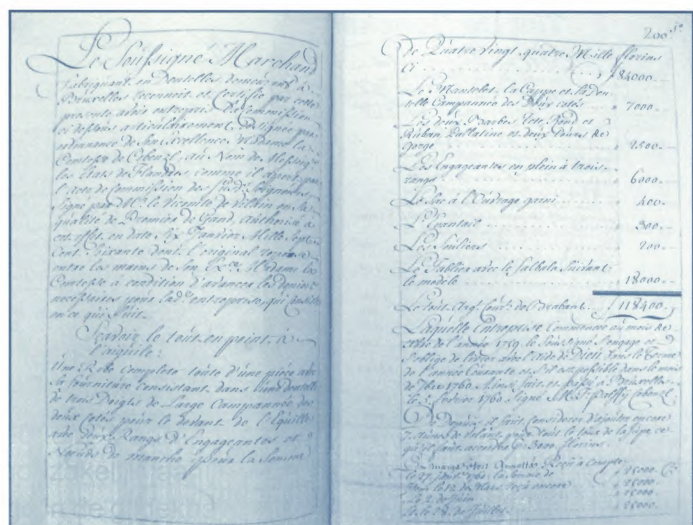 200
Le Soussigné Marchand
fabriquant en Dentelles demeurant à
Bruxelles reconnoit et certifie par cette
presente avoir entrepris la Commission
cy dessous articulairement designée par
ordonnance de Son Excellence Madame la
Comtesse de Cobenzl, au Nom de Messieurs
les Etats de Flandres, comme il apert par
l'acte de Commission des
signé par Mr. le Vicomte de Vilain en Sa
qualité de Premier de Gand, authorisé à
cet effet, en date Six Janvier Mille Sept
Cent Soixante dont l'original repose
entre les mains de Son Exce. Madame la
Comtesse à condition d'avancer les deniers
necessaires pour la de. entreprise, qui consiste
en ce qui suit.
Sçavoir le tout en point à
l'aiguile:
Une Robe complete toute d'une piece avec
la fourniture consistant dans
de trois Doigts de Large Campanée des
deux cotés pour le devant de
avec deux Rangs d'Engageantes et
Nœuds de manche, pour la Somme
De Quatre vingt quatre Mille florins
ci f 84000.
Le Mantelet la Cappe et la Den-
telle Campanée des Deux cotés 7000.
Les deux Barbes, Tete, Fond et
Ruban Pallatine et deux Tours de
Gorge 2500
Les Engageantes en plein à trois
rangs 6000
Le Sac à l'Ouvrage garni 400
L'Evantail 300
Les Souliers 200
Le Tablier avec le falbala suivant
le modele 18000
Le tout Argt. Court. de Brabant 118400
Laquelle Entreprise Commencée au mois de
de l'année 1759. le Soussigné s'engage et
s'oblige de livrer avec l'aide de Dieu dans le Terme
de l'année Courante et s'il est possible dans le mois
de 7bre 1760. Ainsi fait et passé à Bruxelles
le 5. fevrier 1760. Signé M. T. Palffy Cobenzl
De Depuis il fut Consideré d'ajouter encore
de Volant, pour tout le tour de la Jupe, ce
qui fut accordé
En marge étoit Reçu à Compte
la Somme de 25000
le 12. de Mars reçu encore 25000
le 2. de Juin 25000
et le 28. de Juillet 25000